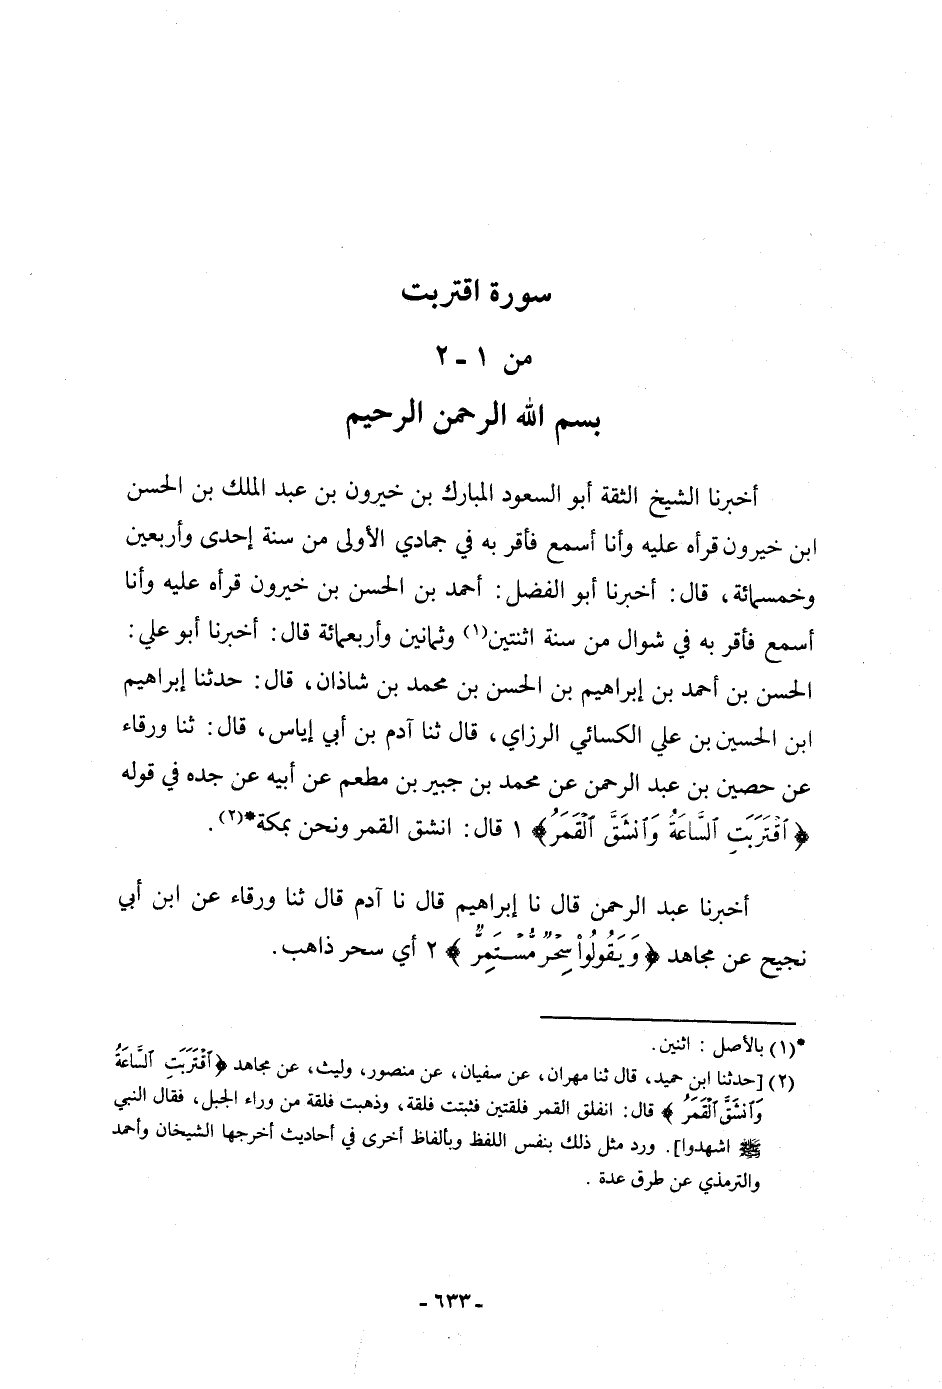 سورة اقتربت
من ١ ـ ٢
بسم الله الرحمن الرحيم
أخبرنا الشيخ الثقة أبو السعود المبارك بن خيرون بن عبد الملك بن الحسن
ابن خيرون قرأه عليه وأنا أسمع فأقر به في جمادي الأولى من سنة إحدى وأربعين
وخمسمائة، قال: أخبرنا أبو الفضل: أحمد بن الحسن بن خيرون قرأه عليه وأنا
أسمع فأقر به في شوال من سنة اثنتين(١) وثمانين وأربعمائة قال: أخبرنا أبو علي:
الحسن بن أحمد بن إبراهيم بن الحسن بن محمد بن شاذان، قال: حدثنا إبراهيم
ابن الحسين بن علي الكسائي الرزاي، قال ثنا آدم بن أبي إياس، قال: ثنا ورقاء
عن حصين بن عبد الرحمن عن محمد بن جبير بن مطعم عن أبيه عن جده في قوله
﴿ٱقْتَرَبَتِ ٱلسَّاعَةُ وَٱنشَقَّ ٱلْقَمَرُ﴾ ١ قال: انشق القمر ونحن بمكة*(٢).
أخبرنا عبد الرحمن قال نا إبراهيم قال نا آدم قال ثنا ورقاء عن ابن أبي
نجيح عن مجاهد ﴿وَيَقُولُواْ سِحْرٌ مُّسْتَمِرٌّ﴾ ٢ أي سحر ذاهب.
*(١) بالأصل: اثنين.
(٢) [حدثنا ابن حميد، قال ثنا مهران، عن سفيان، عن منصور، وليث، عن مجاهد ﴿ٱقْتَرَبَتِ ٱلسَّاعَةُ
وَٱنشَقَّ ٱلْقَمَرُ﴾ قال: انفلق القمر فلقتين فثبتت فلقة، وذهبت فلقة من وراء الجبل، فقال النبي
ﷺ اشهدوا]. ورد مثل ذلك بنفس اللفظ وبألفاظ أخرى في أحاديث أخرجها الشيخان وأحمد
والترمذي عن طرق عدة.
ـ ٦٣٣ ـ